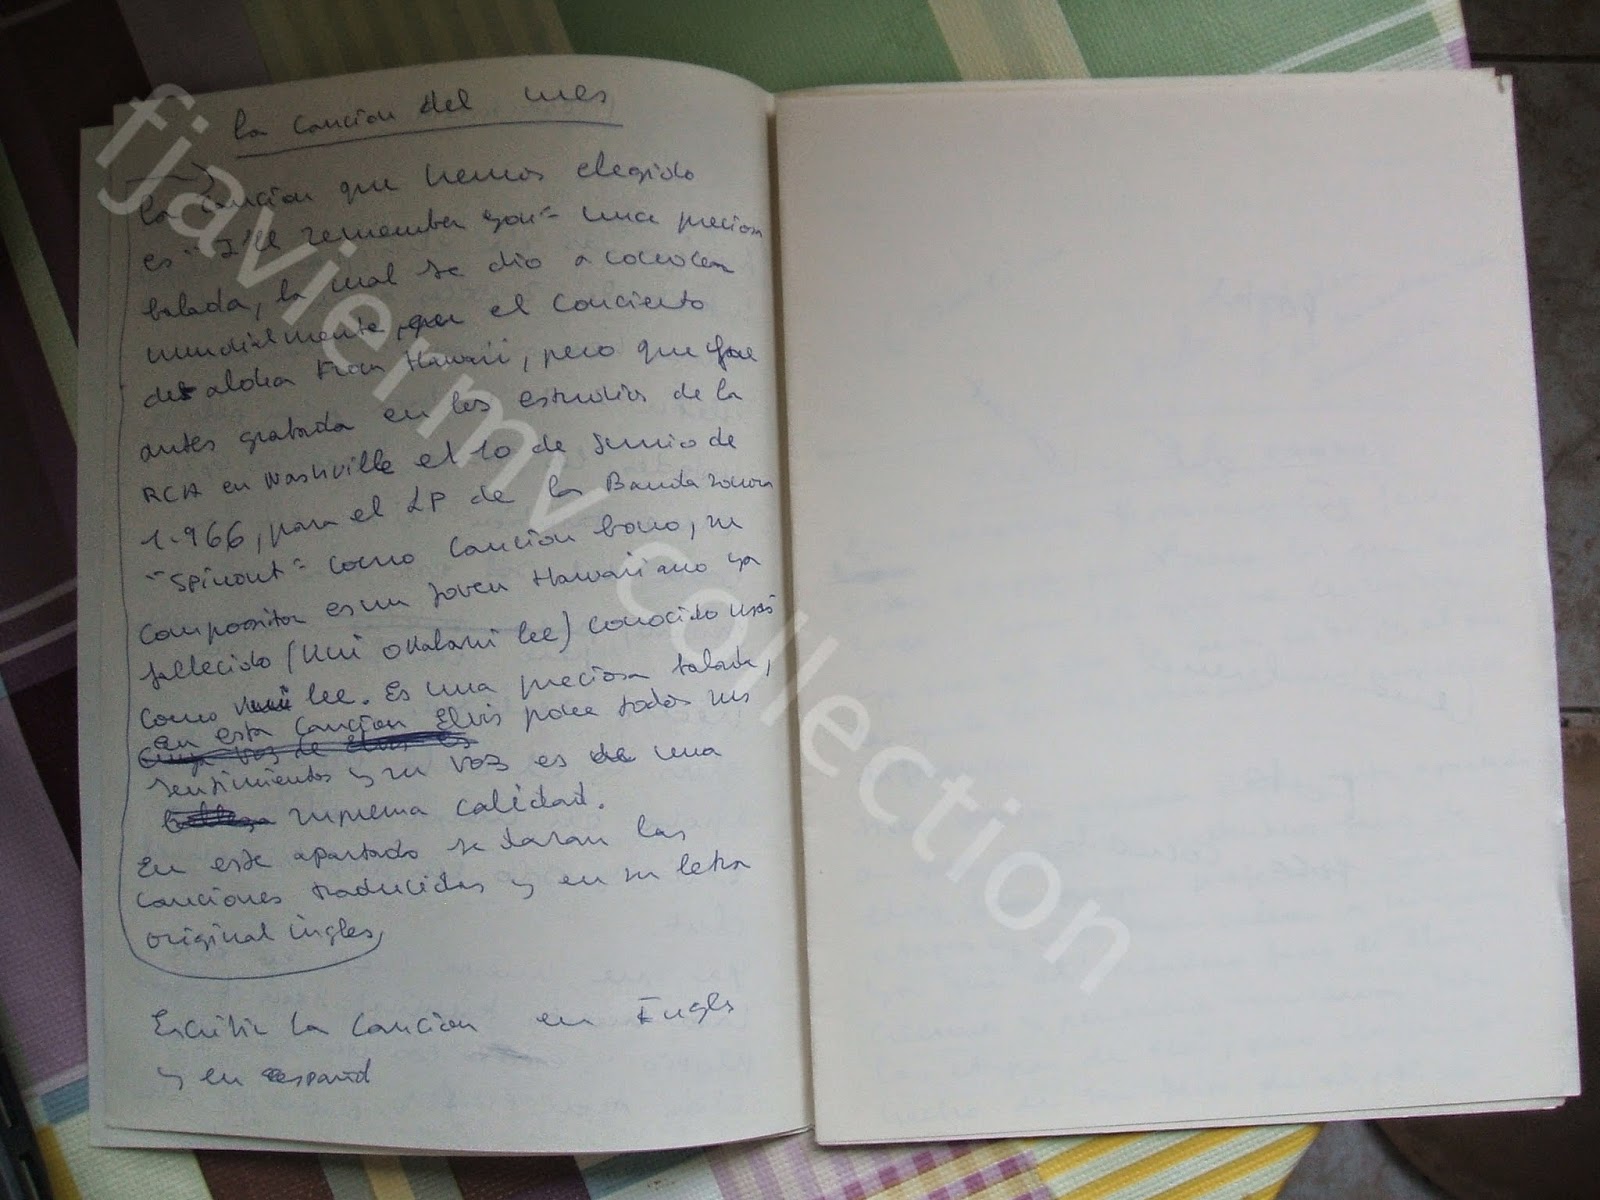 la cancion del mes
la cancion que hemos elegido
es "I'll remember you" una preciosa
balada, la cual se dio a conocer
mundialmente, por el concierto
del aloha From Hawaii, pero que fue
antes grabada en los estudios de la
RCA en Nashville el 10 de Junio de
1.966, para el LP de la Banda sonora
"Spinout" como cancion bono, su
compositor es un Joven Hawaiiano ya
fallecido (Kui Lee) conocido mas
como Kui lee. Es una preciosa balada,
en esta cancion Elvis pone todos sus
sentimientos y su voz es de una
suprema calidad.
En este apartado se daran las
canciones traducidas y en su letra
original ingles,
Escribir la cancion en Ingles
y en español
fjaviermv collection